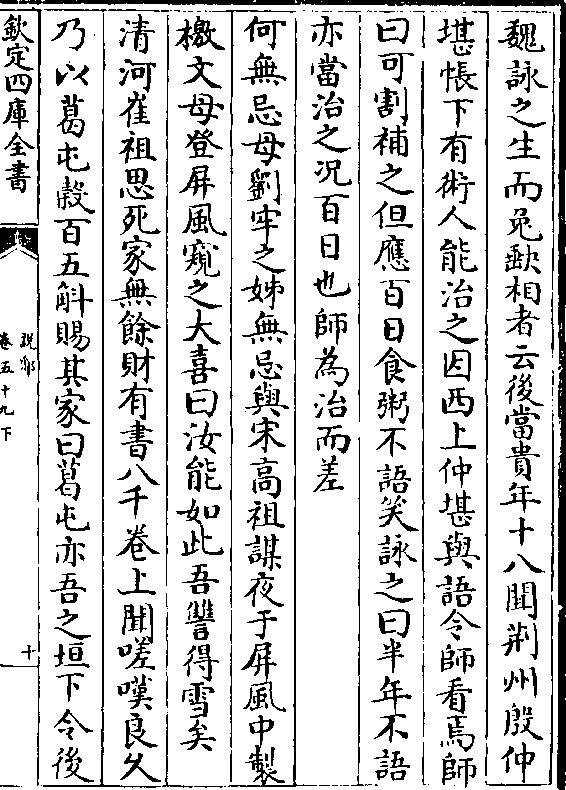 魏詠之生而兎缺相者云後當貴年十八聞荆州殷仲
堪帳下有術人能治之因西上仲堪與語令師看焉師
曰可割補之但應百日食粥不語笑詠之曰半年不語
亦當治之况百日也師為治而差
何無忌母劉牢之姊無忌與宋高祖謀夜于屏風中製
檄文母登屏風窺之大喜曰汝能如此吾讐得雪矣
清河崔祖思死家無餘財有書八千卷上聞嗟嘆良久
乃以葛屯穀百五斛賜其家曰葛屯亦吾之垣下令後
欽定四庫全書
説郛
卷五十九下
十